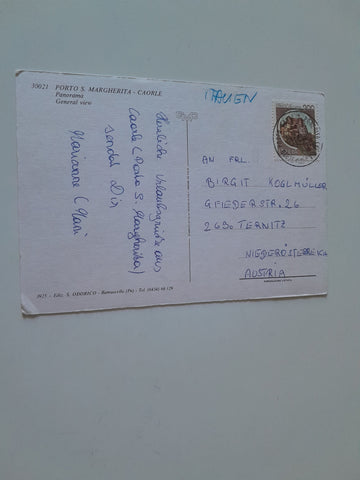 30021 PORTO S. MARGHERITA - CAORLE
Panorama
General view
ITALIEN
Herzliche Urlaubsgrüße aus
Caorle (Porto S. Margherita)
sendet Dir
Marianne (Mari
200
AN FRL.
BIRGIT KOGLMÜLLER
GFIEDERSTR. 26
2630 TERNITZ
NIEDERÖSTERREICH
AUSTRIA
Ediz. S. ODORICO - Ramuscello (Pn) - Tel. (0434)